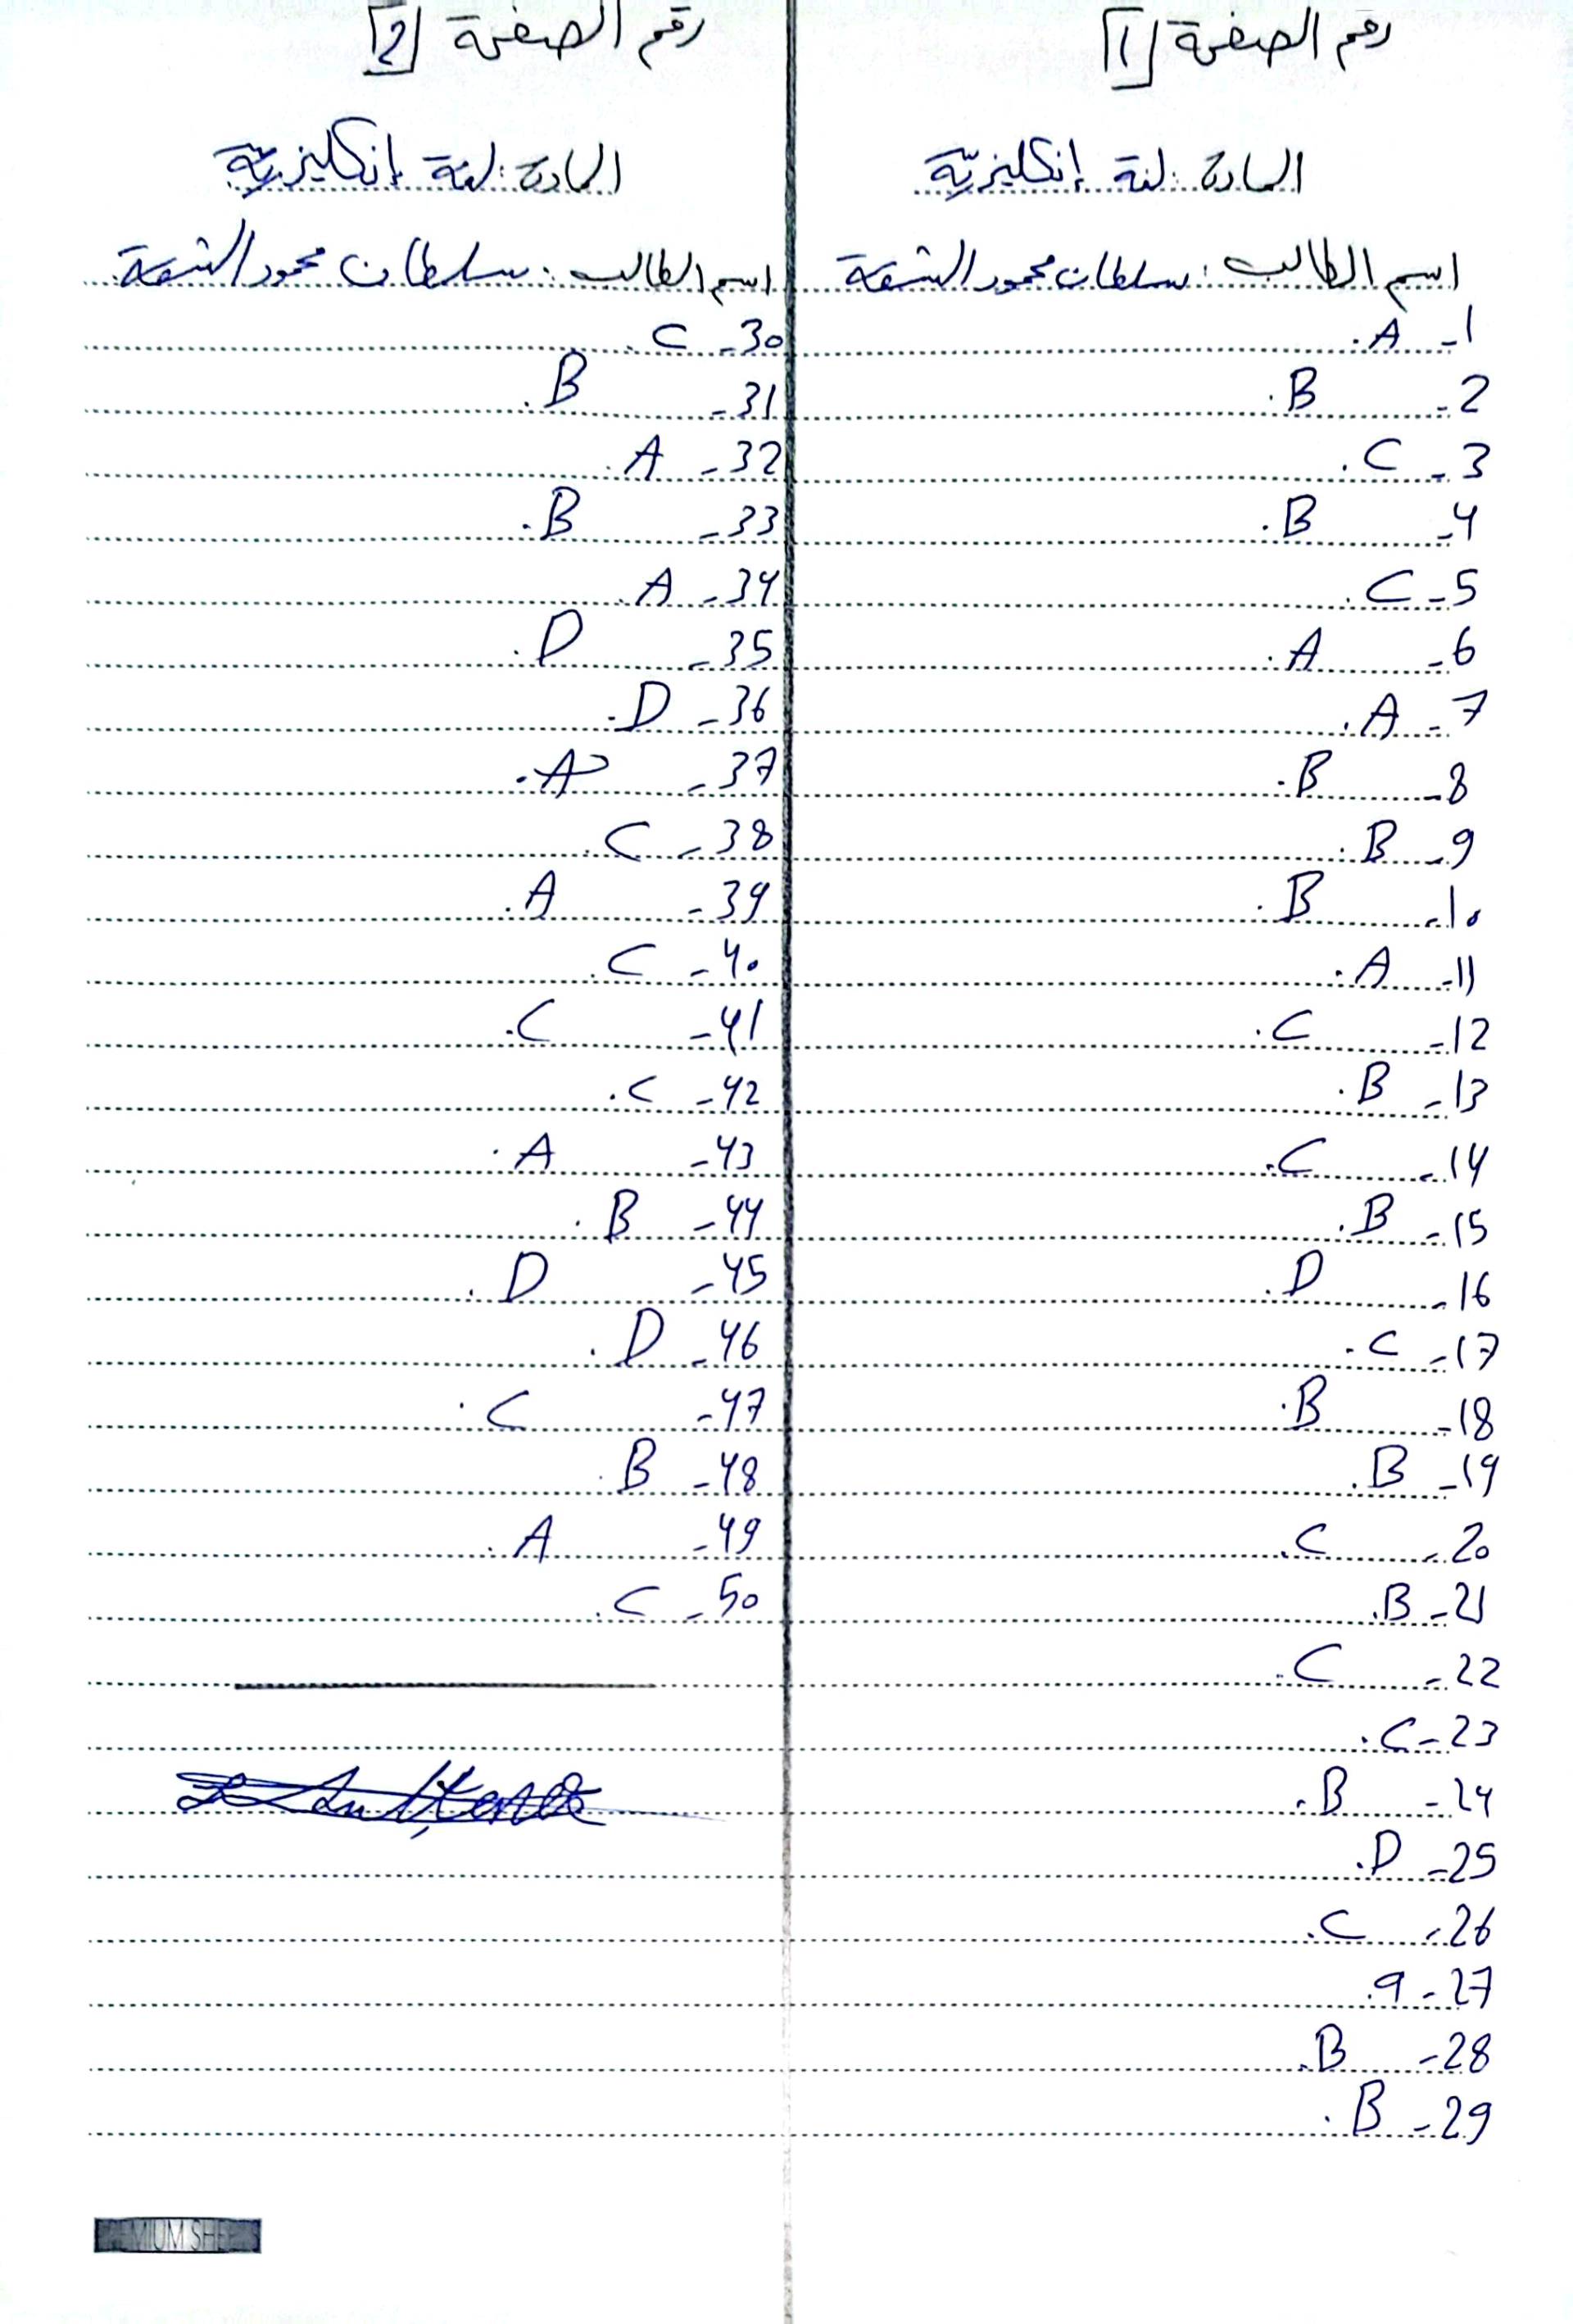 رقم الصفحة [1]
المادة: لغة إنكليزيّة
اسم الطالب: سلطان محمود الشمعة
1- A.
2- B.
3- C.
4- B.
5- C.
6- A.
7- A.
8- B.
9- B.
10- B.
11- A.
12- C.
13- B.
14- C.
15- B.
16- D.
17- C.
18- B.
19- B.
20- C.
21- B.
22- C.
23- C.
24- B.
25- D.
26- C.
27- 9.
28- B.
29- B.
رقم الصفحة [2]
المادة: لغة إنكليزيّة
اسم الطالب: سلطان محمود الشمعة
30- C.
31- B.
32- A.
33- B.
34- A.
35- D.
36- D.
37- A.
38- C.
39- A.
40- C.
41- C.
42- C.
43- A.
44- B.
45- D.
46- D.
47- C.
48- B.
49- A.
50- C.